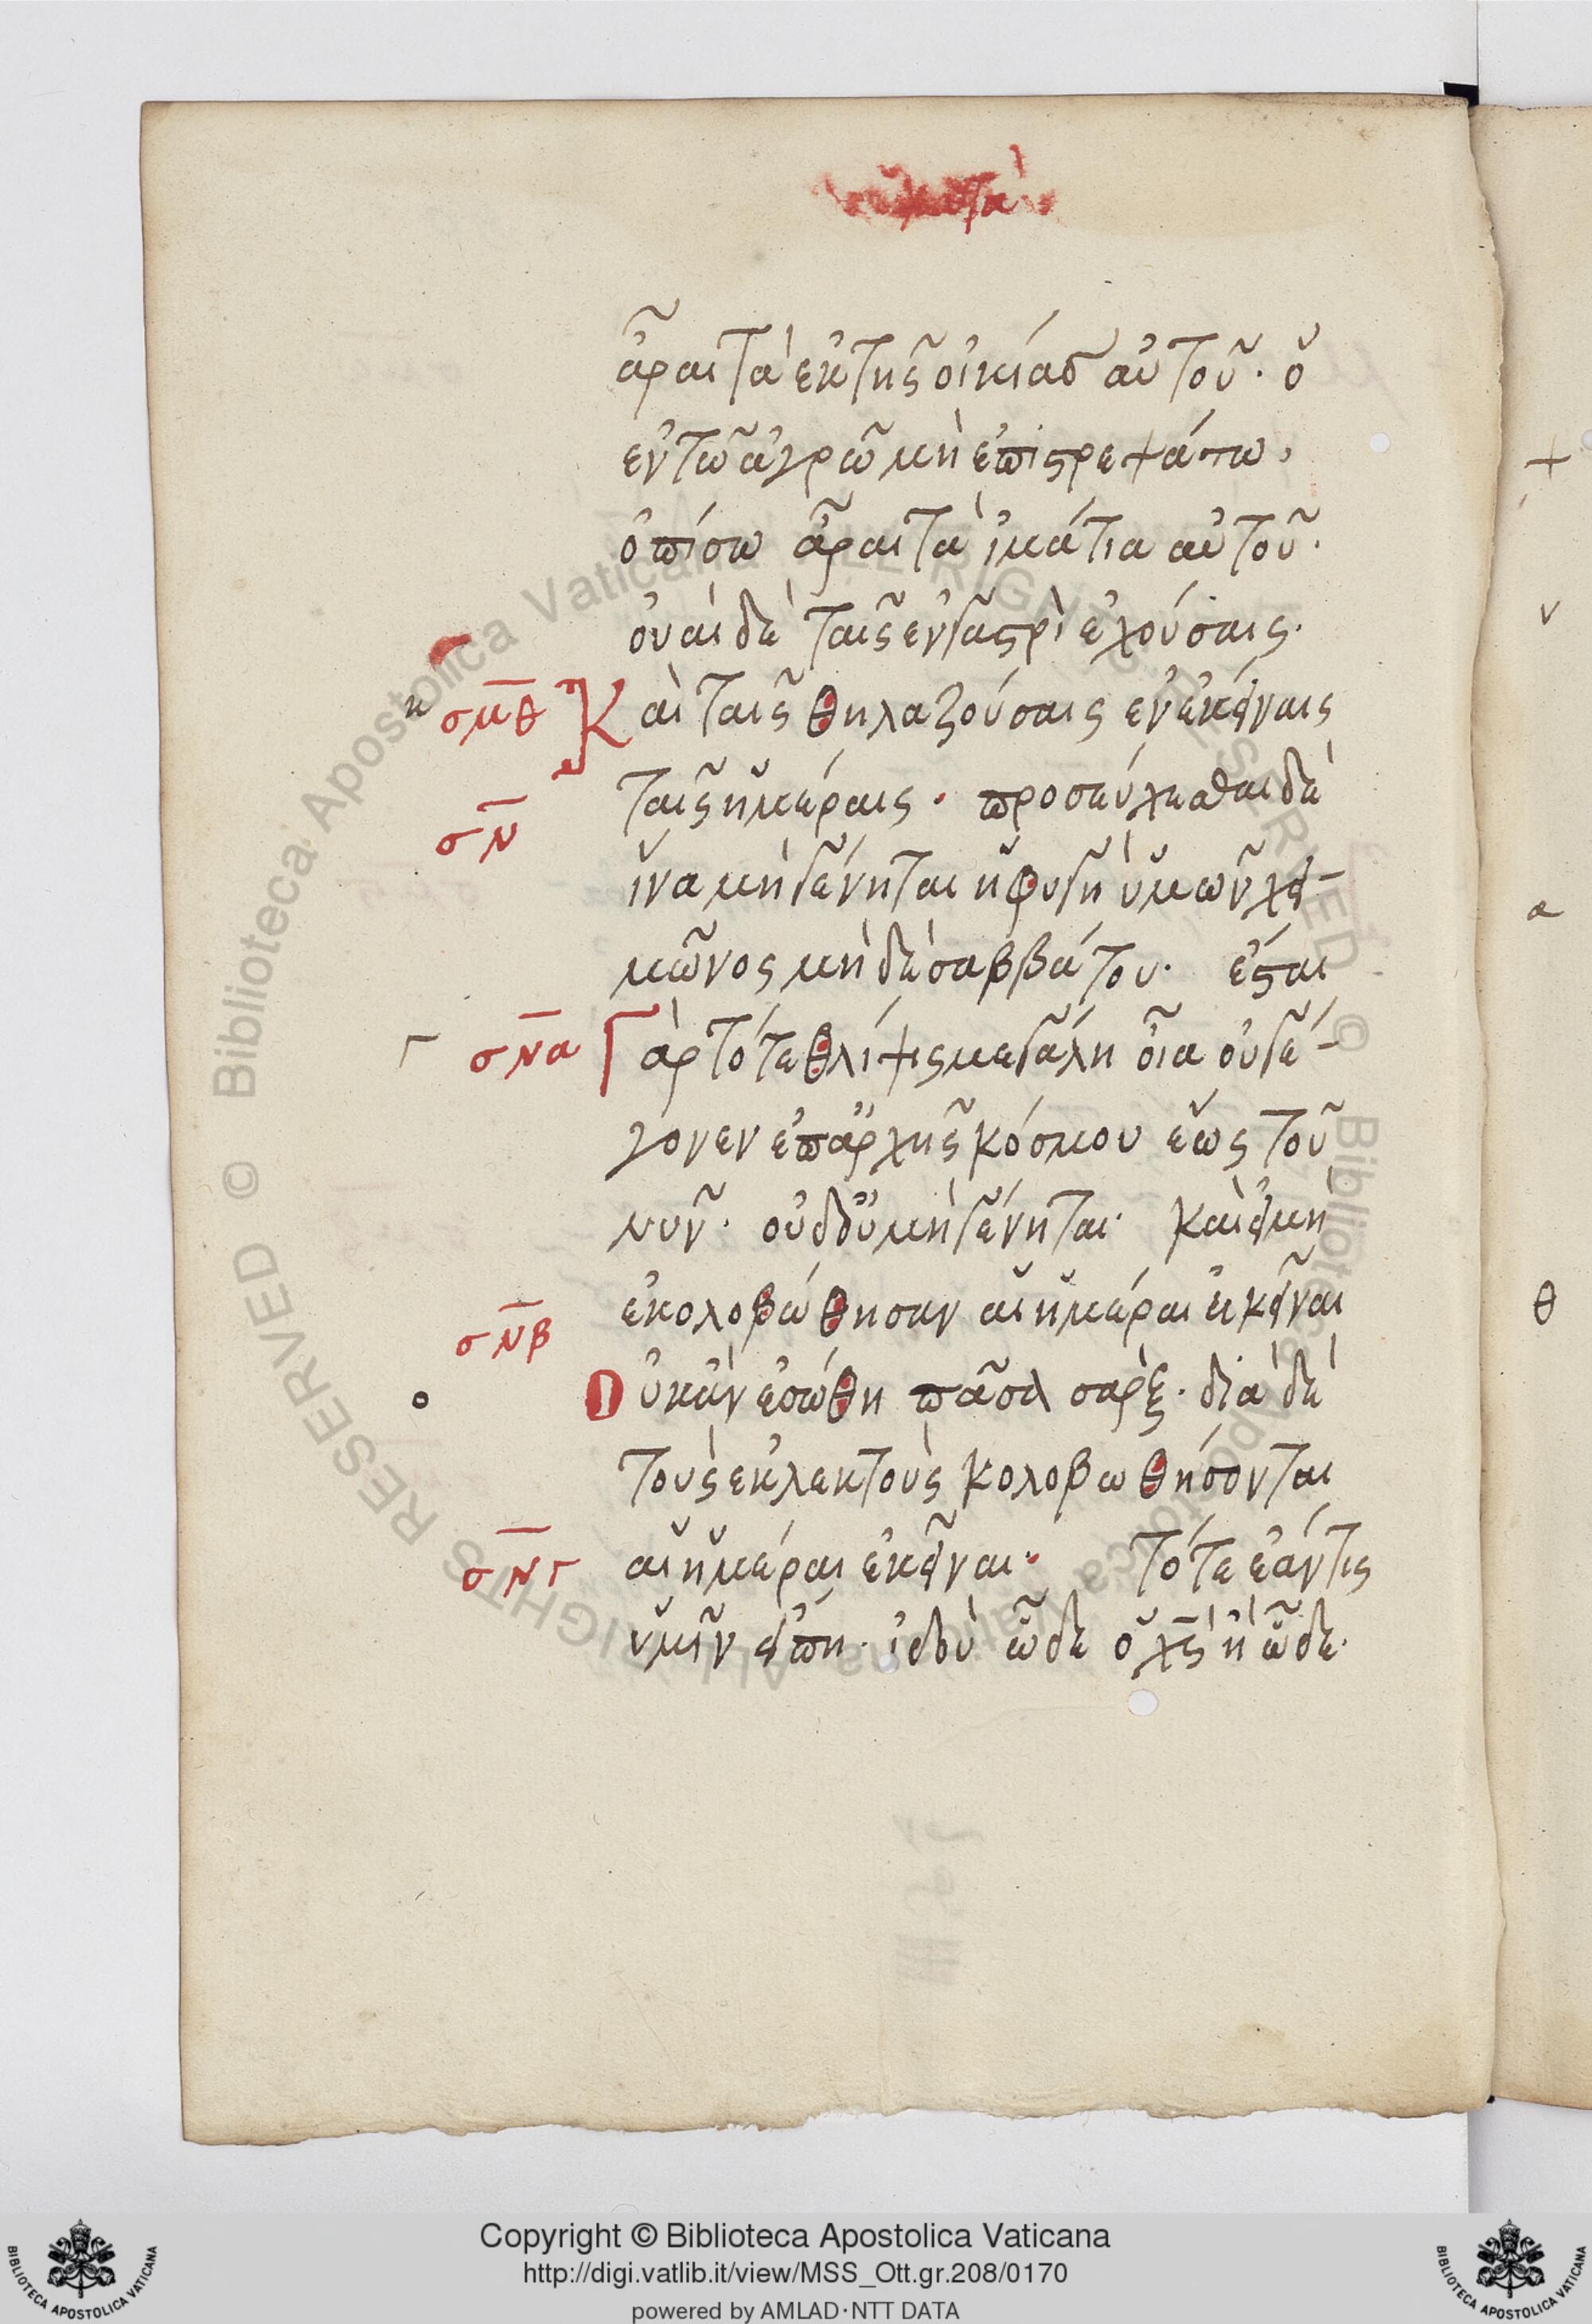 ἆραι τὰ ἐκ τῆς οἰκίας αὐτοῦ· ὁ
ἐν τῶ ἀγρῶ μὴ ἐπιστρεψάτω,
ὀπίσω ἆραι τὰ ἱμάτια αὐτοῦ·
οὐαὶ δὲ ταῖς ἐν γαστρὶ ἐχούσαις·
σμθ Καὶ ταῖς θηλαζούσαις ἐν ἐκείναις
σν ταῖς ἡμέραις· προσεύχεσθαι δὲ
ἵνα μὴ γένηται ἡ φυγὴ ὑμῶν χει-
μῶνος μὴ δὲ σαββάτου· ἔσται
σνα Γὰρ τότε θλίψις μεγάλη οἷα οὐ γέ-
γονεν ἐπαρχῆς κόσμου ἕως τοῦ
νῦν· οὐδοὐμὴ γένηται· καὶ εἰ μὴ
σνβ ἐκολοβώθησαν αἱ ἡμέραι ἐκεῖναι
Οὐκ ἂν ἐσώθη πᾶσα σάρξ· διὰ δὲ
τοὺς ἐκλεκτοὺς κολοβωθήσονται
σνγ αἱ ἡμέραι ἐκεῖναι· τότε ἐάν τις
ὑμῖν εἴπη· ἰδοὺ ὧδε ὁ χς ἢ ὧδε·
Copyright © Biblioteca Apostolica Vaticana
http://digi.vatlib.it/view/MSS_Ott.gr.208/0170
powered by AMLAD·NTT DATA